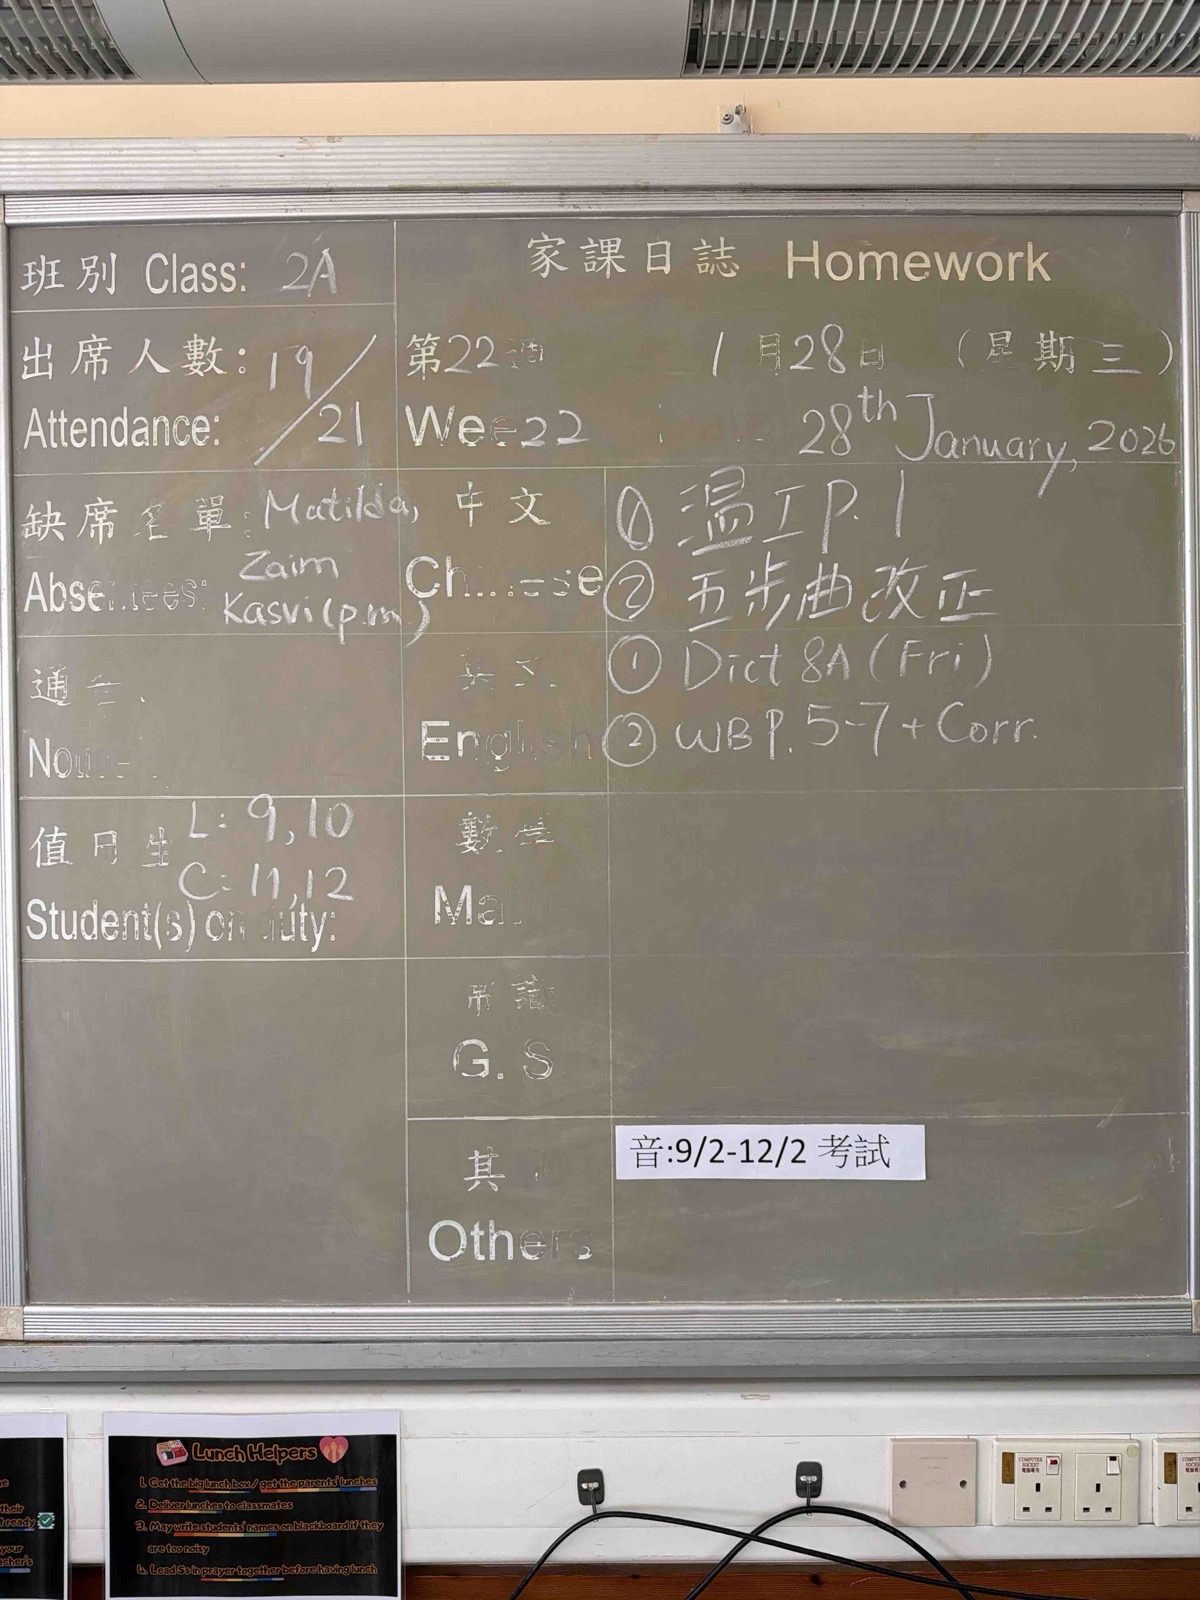 班別 Class: 2A
家課日誌 Homework
出席人數: 19/21
Attendance:
第22週 1月28日 (星期三)
Week 22 28th January, 2026
缺席名單: Matilda,
Zaim
Absentees:
Kasvi (p.m)
中文
Chinese
① 温工P.1
② 五步曲改正
通告
英文
English
① Dict 8A (Fri)
② WB P.5-7 + Corr.
值日生 L: 9,10
C: 11,12
Student(s) on duty:
數學
常識
G. S
其
Others
音:9/2-12/2 考試
Lunch Helpers
1. Get the big lunch box / get the parents' lunches
2. Deliver lunches to classmates
3. May write students' names on blackboard if they
are too noisy
4. Lead Ss in prayer together before having lunch
their
ready
your
COMPUTER
SOCKET
電腦專用